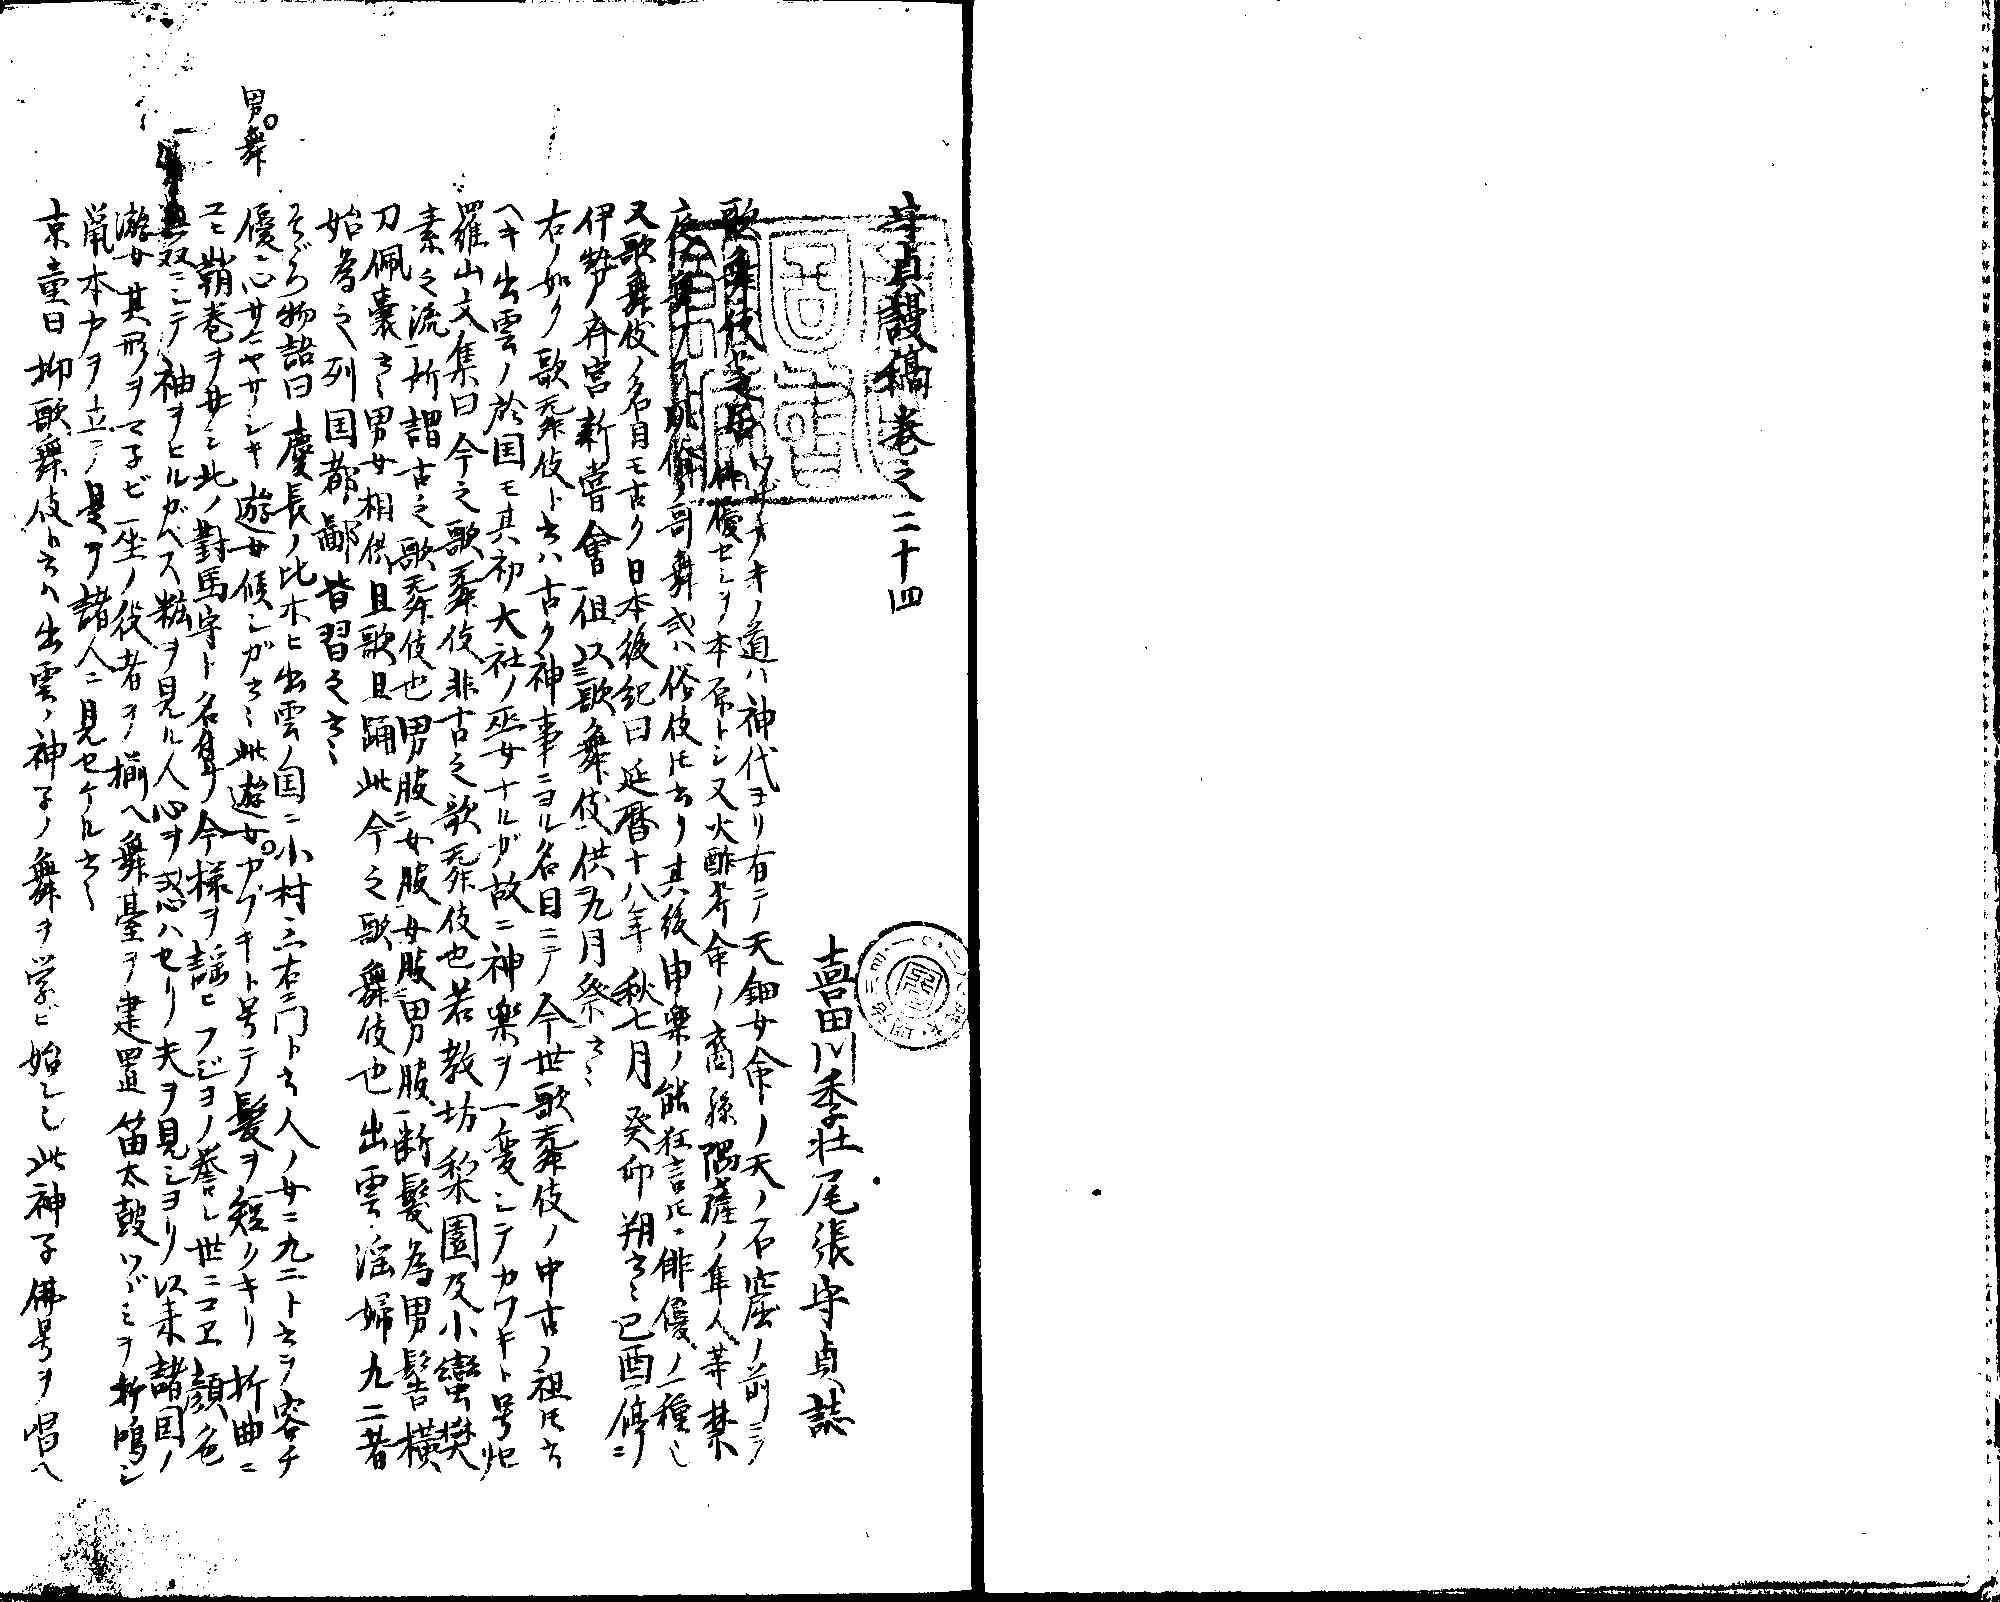 守貞謾稿巻之二十四
喜田川季荘尾張守貞誌
歌舞伎芝居 ワサヲキノ道ハ神代ヨリ有テ天鈿女命ノ天ノ石窟ノ前ニテ
俳優セシヲ本原トシ又火酢芹命ノ裔孫隅薩ノ隼人等禁
夜舞ナク 俗ノ哥舞或ハ俗伎氏云リ其後申楽ノ能狂言氏ニ俳優ノ一種也
又歌舞伎ノ名目モ古ク日本後紀曰延暦十八年秋七月癸卯朔云々已酉停
伊勢ノ斉宮新嘗會一但以歌舞伎供九月祭云々
右ノ如ク歌舞伎ト云ハ古ク神事ニヨル名目ニテ今世歌舞伎ノ中古ノ祖氏云
ヘキ出雲ノ於国モ其初大社ノ巫女ナルガ故ニ神楽ヲ一変シテカブキト号
羅山文集曰今之歌舞伎非古之歌舞伎也若教坊梨園及小蠻樊
素之流一所謂古之歌舞伎也男服ニ女服一女服ニ男服一断髪為男髻横
刀佩嚢云々男女相供且歌且踊此今之歌舞伎也出雲淫婦九二者
始為之列国都鄙皆習之云々
そゞろ物語曰慶長ノ比ホヒ出雲ノ国ニ小村三右エ門ト云人ノ女ニ九ニト云テ容チ
優ニ心サニヤサシキ遊女候シガ云々此遊女カブキト号テ髪ヲ短クキリ折曲ニ
男舞
コヒ鞘巻ヲサシ此ノ對馬守ト名付今様ヲ謡ヒフジヨノ誉レ世ニコヱ顔色
無双ニシテ袖ヲヒルガヘス粧ヲ見ル人心ヲ惑ハセリ夫ヲ見シヨリ以来諸国ノ
遊女其形ヲマ子ビ一座ノ役者ヲ揃ヘ舞臺ヲ建置笛太鼓ツヾミヲ打鳴シ
鼠木戸ヲ立テ是ヲ諸人ニ見セケル云々
京童曰抑歌舞伎ト云ハ出雲ノ神子ノ舞ヲ学ビ始シ也此神子佛号ヲ唱ヘ